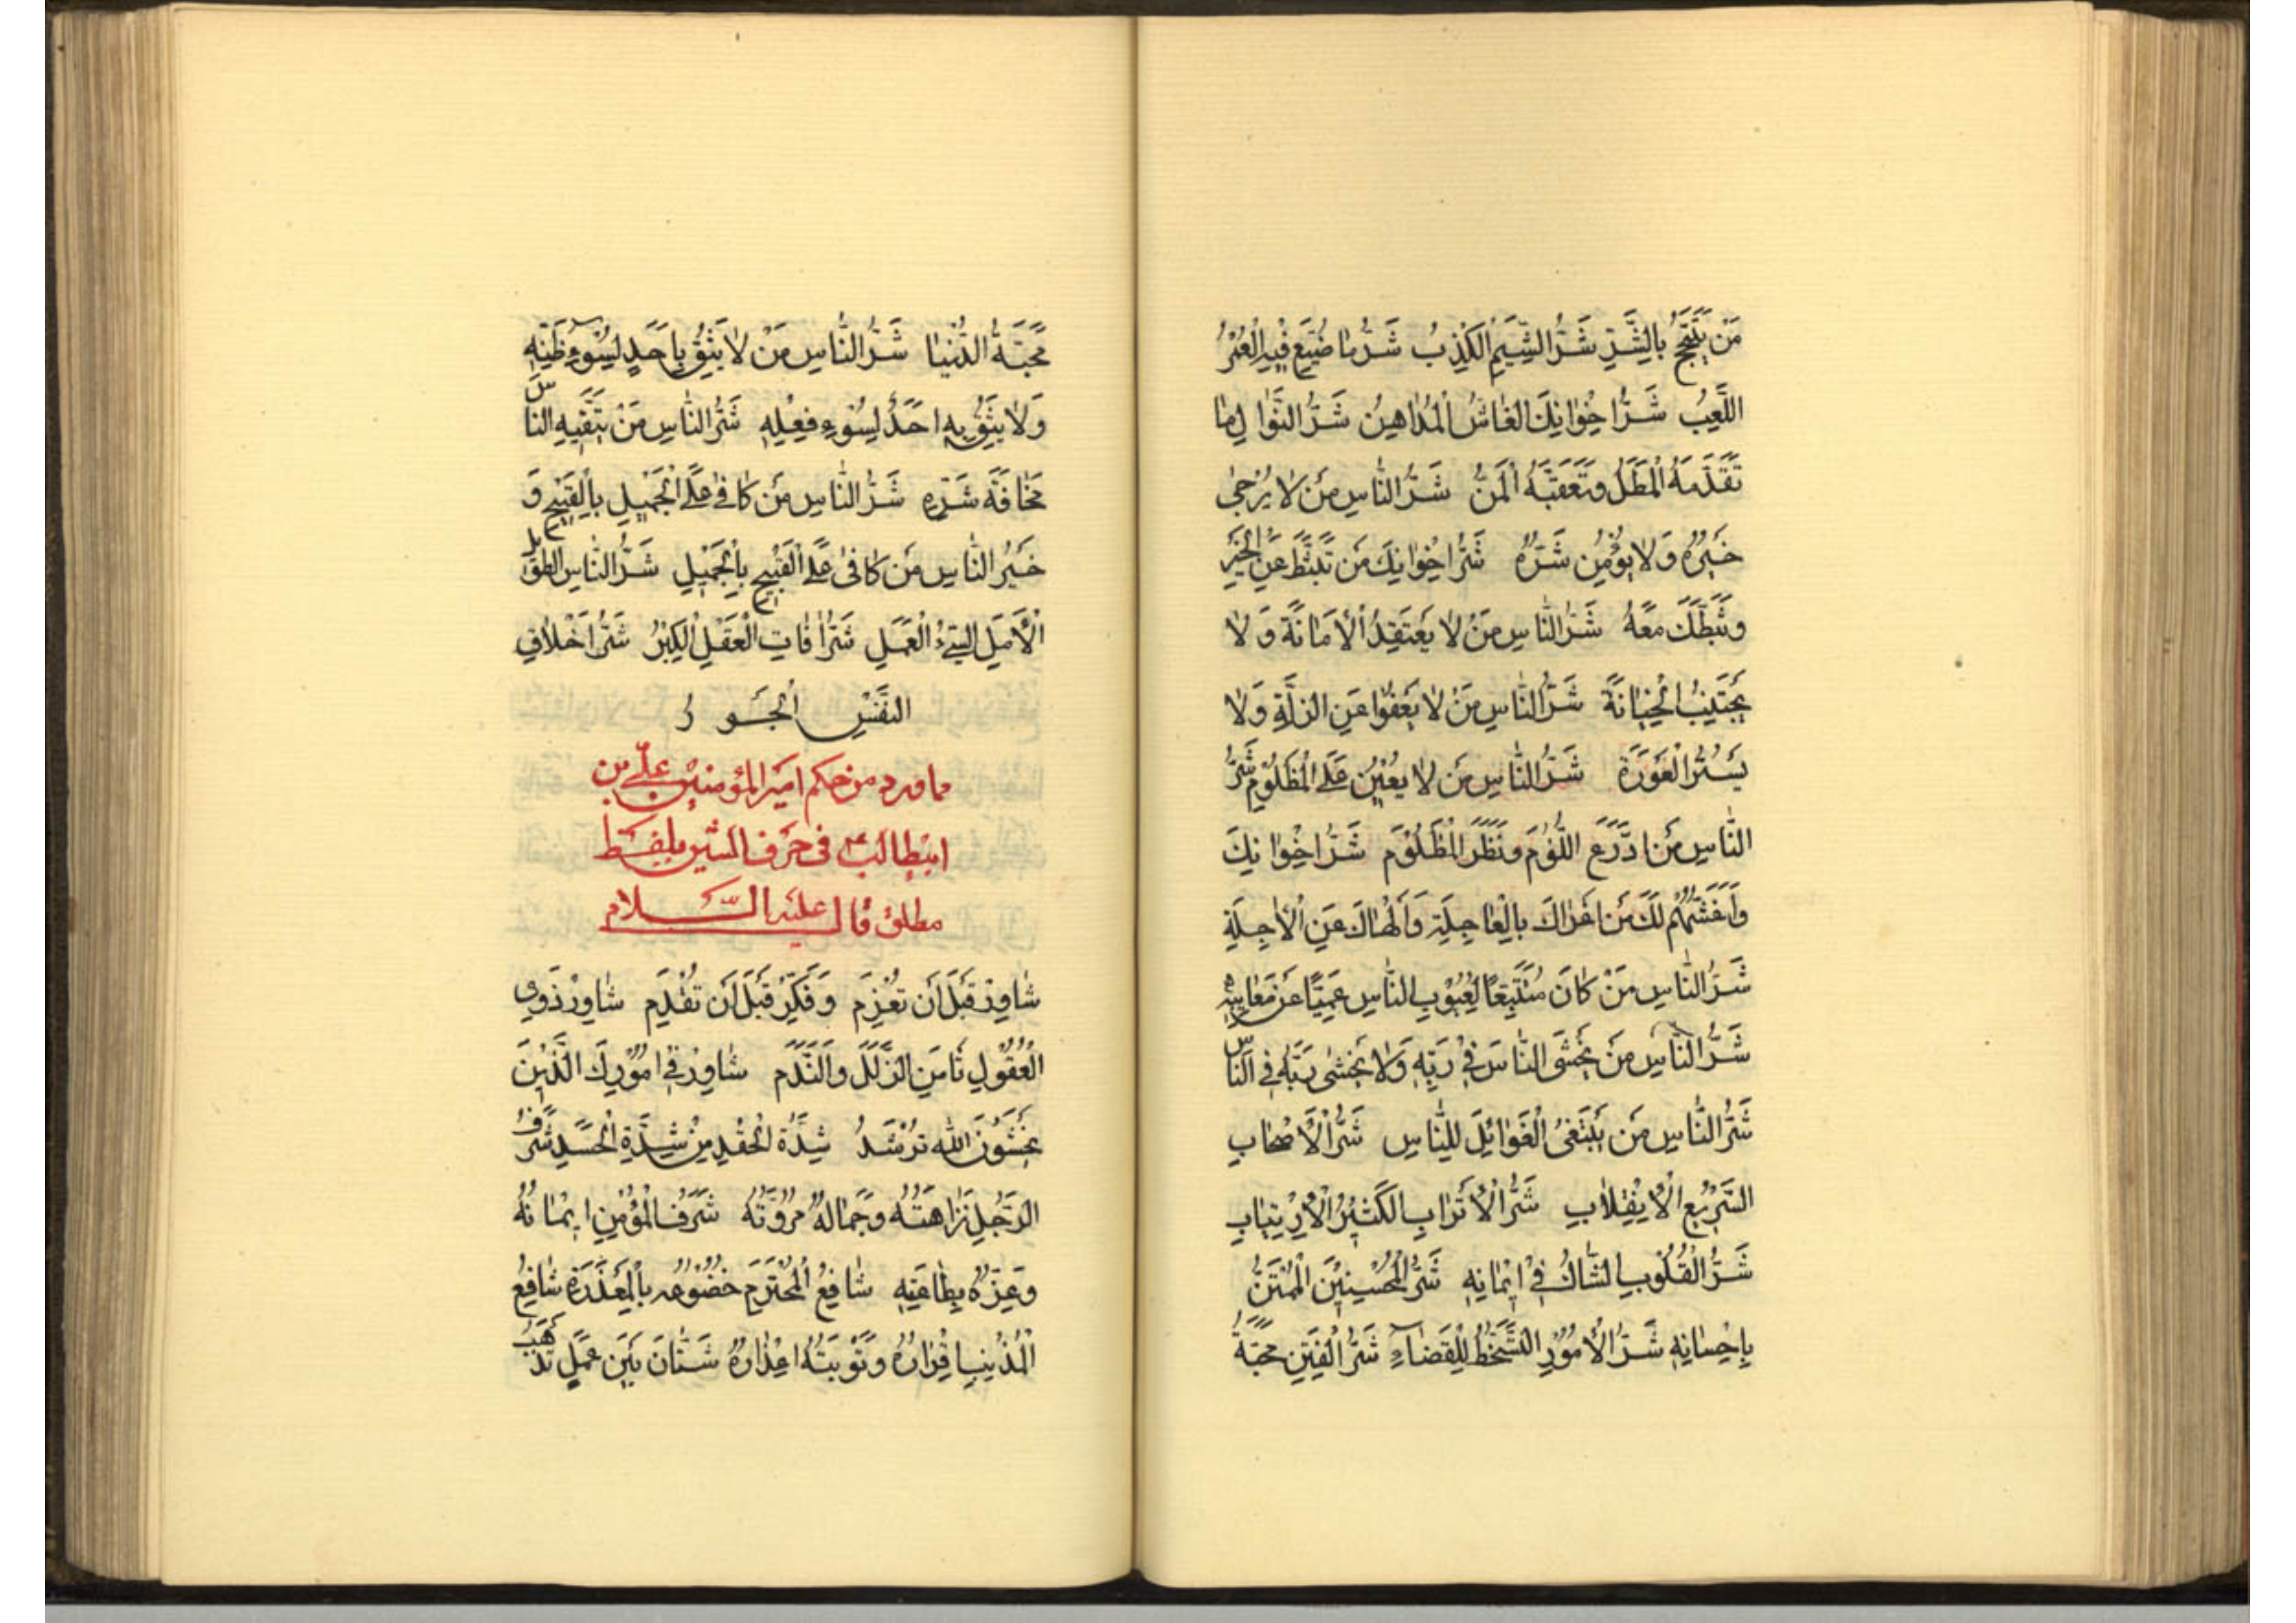 مَنْ يَتَبَجَّحُ بِالشَّرِّ شَرُّ الشِّيَمِ الْكِذْبُ شَرُّ مَا ضُيِّعَ فِيهِ الْعُمْرُ
اللَّعِبُ شَرُّ اِخْوَانِكَ الْغَاشُّ الْمُدَاهِنُ شَرُّ النَّوَالِ مَا
تَقَدَّمَهُ الْمَطَلُ وَتَعَقَّبَهُ الْمَنُّ شَرُّ النَّاسِ مَنْ لَا يُرْجَى
خَيْرُهُ وَلَا يُؤْمَنُ شَرُّهُ شَرُّ اِخْوَانِكَ مَنْ تَثَبَّطَ عَنِ الْخَيْرِ
وَثَبَّطَكَ مَعَهُ شَرُّ النَّاسِ مَنْ لَا يَعْتَقِدُ الْأَمَانَةَ وَلَا
يَجْتَنِبُ الْخِيَانَةَ شَرُّ النَّاسِ مَنْ لَا يَعْفُوا عَنِ الزَّلَّةِ وَلَا
يَسْتُرُ الْعَوْرَةَ شَرُّ النَّاسِ مَنْ لَا يُعِينُ عَلَى الْمَظْلُومِ شَرُّ
النَّاسِ مَنِ ادَّرَعَ اللُّؤْمَ وَنَظَرَ الْمَظْلُومَ شَرُّ اِخْوَانِكَ
وَأَغَشُّهُمْ لَكَ مَنْ اَغْرَاكَ بِالْعَاجِلَةِ وَأَلْهَاكَ عَنِ الْآجِلَةِ
شَرُّ النَّاسِ مَنْ كَانَ مُتَتَبِّعًا لِعُيُوبِ النَّاسِ عَمِيًّا عَنْ مَعَايِبِهِ
شَرُّ النَّاسِ مَنْ يَخْشَى النَّاسَ فِي رَبِّهِ وَلَا يَخْشَى رَبَّهُ فِي النَّاسِ
شَرُّ النَّاسِ مَنْ يَبْتَغِي الْغَوَائِلَ لِلنَّاسِ شَرُّ الْأَصْحَابِ
السَّرِيعُ الْاِنْقِلَابِ شَرُّ الْأَتْرَابِ الْكَثِيرُ الْاِرْتِيَابِ
شَرُّ الْقُلُوبِ الشَّاكُّ فِي اِيْمَانِهِ شَرُّ الْمُحْسِنِينَ الْمُمْتَنُّ
بِإِحْسَانِهِ شَرُّ الْأُمُورِ التَّسَخُّطُ لِلْقَضَاءِ شَرُّ الْفِتَنِ مَحَبَّةُ
مَحَبَّةُ الدُّنْيَا شَرُّ النَّاسِ مَنْ لَا يَثِقُ بِاَحَدٍ لِسُوءِ ظَنِّهِ
وَلَا يَثِقُ بِهِ اَحَدٌ لِسُوءِ فِعْلِهِ شَرُّ النَّاسِ مَنْ يَتَّقِيهِ النَّاسُ
مَخَافَةَ شَرِّهِ شَرُّ النَّاسِ مَنْ كَافَى عَلَى الْجَمِيلِ بِالْقَبِيحِ وَ
خَيْرُ النَّاسِ مَنْ كَافَى عَلَى الْقَبِيحِ بِالْجَمِيلِ شَرُّ النَّاسِ الطَّوِيلُ
الْأَمَلِ السَّيِّءُ الْعَمَلِ شَرُّ اٰفَاتِ الْعَقْلِ الْكِبْرُ شَرُّ اَخْلَاقِ
النَّفْسِ الْجَوْرُ
مما ورد من حكم امير المؤمنين علي بن
ابيطالب ع في حرف الشين بلفظ
مطلق قال عليه السلام
شَاوِرْ قَبْلَ أَنْ تَعْزِمَ وَفَكِّرْ قَبْلَ أَنْ تُقْدِمَ شَاوِرْ ذَوِي
الْعُقُولِ تَأْمَنِ الزَّلَلَ وَالنَّدَمَ شَاوِرْ فِي اُمُورِكَ الَّذِينَ
يَخْشَوْنَ اللهَ تَرْشُدْ شِدَّةُ الْحِقْدِ مِنْ شِدَّةِ الْحَسَدِ شَرَفُ
الرَّجُلِ نَزَاهَتُهُ وَجَمَالُهُ مُرُوَّتُهُ شَرَفُ الْمُؤْمِنِ اِيْمَانُهُ
وَعِزُّهُ بِطَاعَتِهِ شَافِعُ الْمُجْرِمِ خُضُوعُهُ بِالْمَعْذِرَةِ شَافِعُ
الْمُذْنِبِ اِقْرَارُهُ وَتَوْبَتُهُ اعْتِذَارُهُ شَتَّانَ بَيْنَ عَمَلٍ تَذْهَبُ